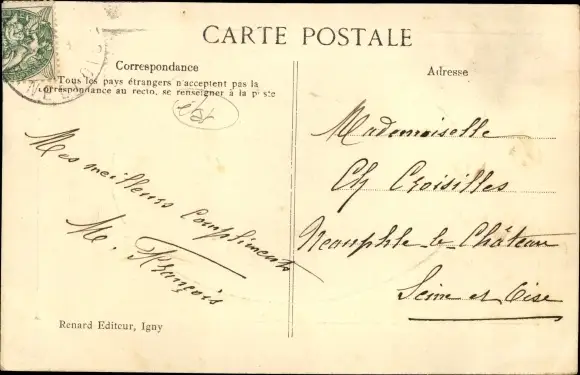 CARTE POSTALE
Correspondance
Tous les pays étrangers n'acceptent pas la
correspondance au recto, se renseigner à la poste
Mes meilleurs compliments
M. François
Renard Editeur, Igny
Adresse
Mademoiselle
Ch Croisilles
Neauphle-le-Château
Seine et Oise